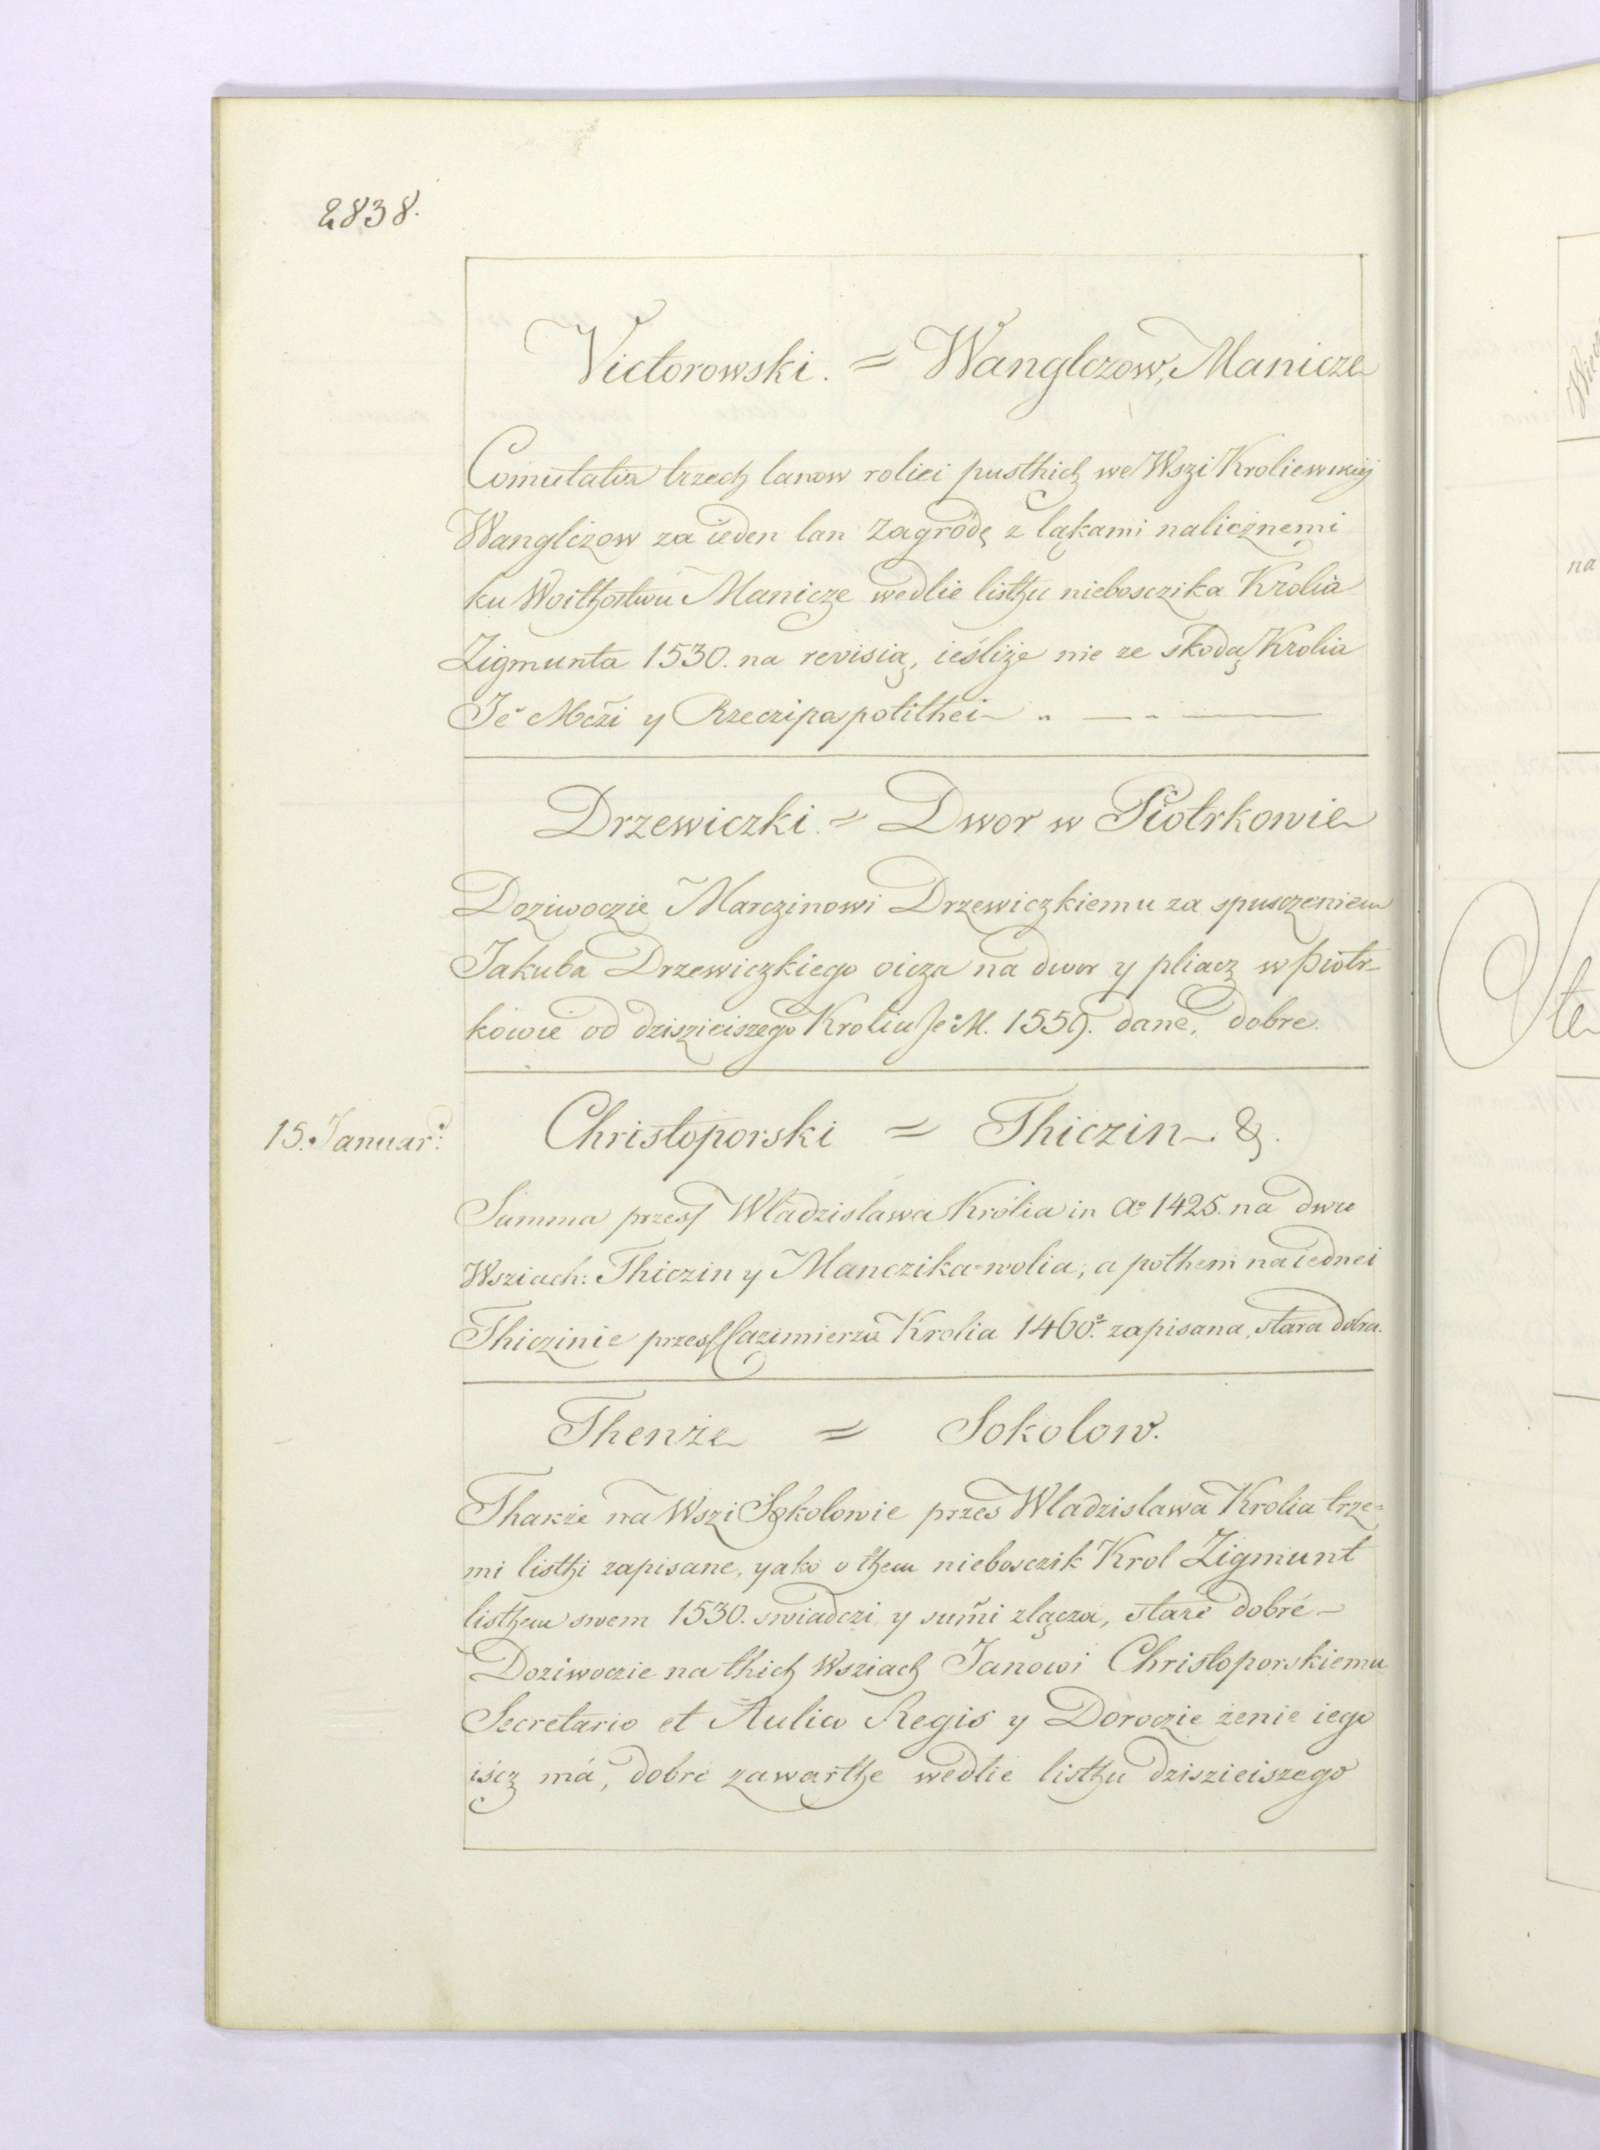 2838.
Victorowski. = Wanglczow, Manicze
Comutatia trzech lanow roliei pusthich we Wszi Kroliewskiej
Wanglczow za ieden lan zagrodę z ląkami nalicznemi
ku Woithostwu Manicze wedlie listhu nieboszczika Krolia
Zigmunta 1530. na revisią, ieśliże nie ze skodą Krolia
Je° Mczi y Rzeczipapolithei
Drzewiczki. = Dwor w Piotrkowie
Doziwoczie Marczinowi Drzewiczkiemu za spusczeniem
Jakuba Drzewiczkiego oicza na dwor y pliacz w Piotr-
kowie od dziszieiszego Krolia Je° M. 1559. dane, dobre.
15. Januar:
Christoporski = Thiczin &.
Summa przess Wladzislawa Krolia in A° 1425. na dwu
Wsziach: Thiczin y Manczika=wolia, a pothem na iednei
Thiczinie przess Cazimierza Krolia 1460° zapisana, stara dobra.
Thenże = Sokolow.
Thakże na Wszi Sokolowie przes Wladzislawa Krolia trze=
mi listhi zapisane, yako o them niebosczik Krol Zigmunt
listhem swem 1530. swiadczi y sum̄i zlącza, stare dobre
Doziwoczie na thich Wsziach Janowi Christoporskiemu
Secretario et Aulico Regis y Doroczie żenie iego
iścz má, dobre zawarthe wedlie listhu dziszieiszego
na